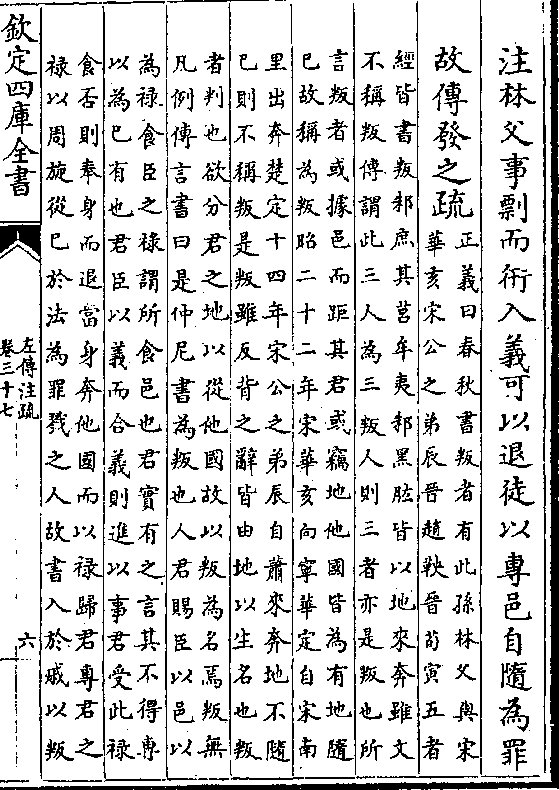 注林父事剽而衎入義可以退徒以專邑自隨為罪
故傳發之疏
正義曰春秋書叛者有此孫林父與宋
華亥宋公之弟辰晉趙鞅晉荀寅五者
經皆書叛邾庶其莒牟夷邾黑肱皆以地來奔雖文
不稱叛傳謂此三人為三叛人則三者亦是叛也所
言叛者或據邑而距其君或竊地他國皆為有地隨
已故稱為叛昭二十二年宋華亥向寧華定自宋南
里出奔楚定十四年宋公之弟辰自蕭來奔地不隨
已則不稱叛是叛雖反背之辭皆由地以生名也叛
者判也欲分君之地以從他國故以叛為名焉叛無
凡例傳言書曰是仲尼書為叛也人君賜臣以邑以
為禄食臣之禄謂所食邑也君實有之言其不得專
以為已有也君臣以義而合義則進以事君受此禄
食否則奉身而退當身奔他國而以禄歸君專君之
禄以周旋從已於法為罪戮之人故書入於戚以叛
欽定四庫全書
左傳注疏
卷三十七
六